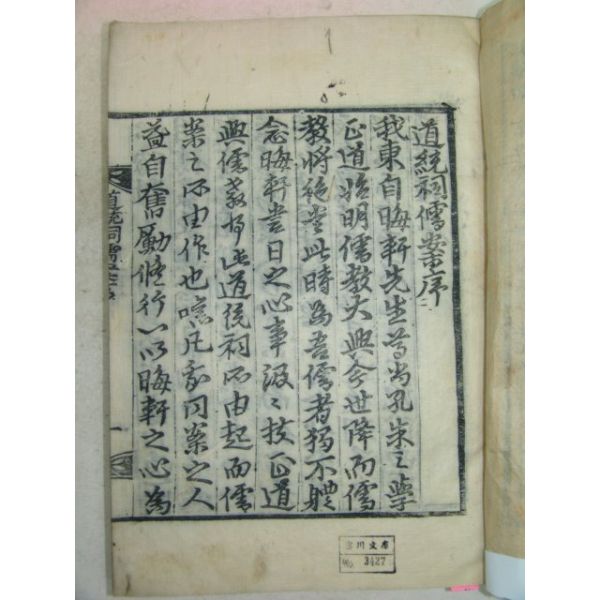 道統祠儒案序
我東自晦軒先生尊尚孔朱之學
正道始明儒教大興今世降而儒
教將絶當此時為吾儒者獨不體
念晦軒當日之心事汲〻扶正道
興儒教乎此道統祠所由起而儒
案之所由作也噫凡我同案之人
益自奮勵修行以晦軒之心為
道統祠儒案序
一
No 3427